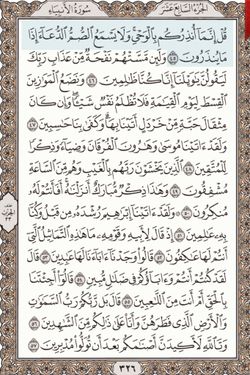 الجزء السابع عشر
سورة الأنبياء
قُلْ إِنَّمَآ أُنذِرُكُم بِٱلْوَحْىِ وَلَا يَسْمَعُ ٱلصُّمُّ ٱلدُّعَآءَ إِذَا
مَا يُنذَرُونَ ٤٥ وَلَئِن مَّسَّتْهُمْ نَفْحَةٌ مِّنْ عَذَابِ رَبِّكَ
لَيَقُولُنَّ يَٰوَيْلَنَآ إِنَّا كُنَّا ظَٰلِمِينَ ٤٦ وَنَضَعُ ٱلْمَوَٰزِينَ
ٱلْقِسْطَ لِيَوْمِ ٱلْقِيَٰمَةِ فَلَا تُظْلَمُ نَفْسٌ شَيْـًٔا وَإِن كَانَ
مِثْقَالَ حَبَّةٍ مِّنْ خَرْدَلٍ أَتَيْنَا بِهَا وَكَفَىٰ بِنَا حَٰسِبِينَ ٤٧
وَلَقَدْ ءَاتَيْنَا مُوسَىٰ وَهَٰرُونَ ٱلْفُرْقَانَ وَضِيَآءً وَذِكْرًا
لِّلْمُتَّقِينَ ٤٨ ٱلَّذِينَ يَخْشَوْنَ رَبَّهُم بِٱلْغَيْبِ وَهُم مِّنَ ٱلسَّاعَةِ
مُشْفِقُونَ ٤٩ وَهَٰذَا ذِكْرٌ مُّبَارَكٌ أَنزَلْنَٰهُ أَفَأَنتُمْ لَهُۥ
مُنكِرُونَ ٥٠ وَلَقَدْ ءَاتَيْنَآ إِبْرَٰهِيمَ رُشْدَهُۥ مِن قَبْلُ وَكُنَّا
بِهِۦ عَٰلِمِينَ ٥١ إِذْ قَالَ لِأَبِيهِ وَقَوْمِهِۦ مَا هَٰذِهِ ٱلتَّمَاثِيلُ ٱلَّتِىٓ
أَنتُمْ لَهَا عَٰكِفُونَ ٥٢ قَالُوا۟ وَجَدْنَآ ءَابَآءَنَا لَهَا عَٰبِدِينَ ٥٣ قَالَ
لَقَدْ كُنتُمْ أَنتُمْ وَءَابَآؤُكُمْ فِى ضَلَٰلٍ مُّبِينٍ ٥٤ قَالُوٓا۟ أَجِئْتَنَا
بِٱلْحَقِّ أَمْ أَنتَ مِنَ ٱللَّٰعِبِينَ ٥٥ قَالَ بَل رَّبُّكُمْ رَبُّ ٱلسَّمَٰوَٰتِ
وَٱلْأَرْضِ ٱلَّذِى فَطَرَهُنَّ وَأَنَا۠ عَلَىٰ ذَٰلِكُم مِّنَ ٱلشَّٰهِدِينَ ٥٦
وَتَٱللَّهِ لَأَكِيدَنَّ أَصْنَٰمَكُم بَعْدَ أَن تُوَلُّوا۟ مُدْبِرِينَ ٥٧
٣٢٦